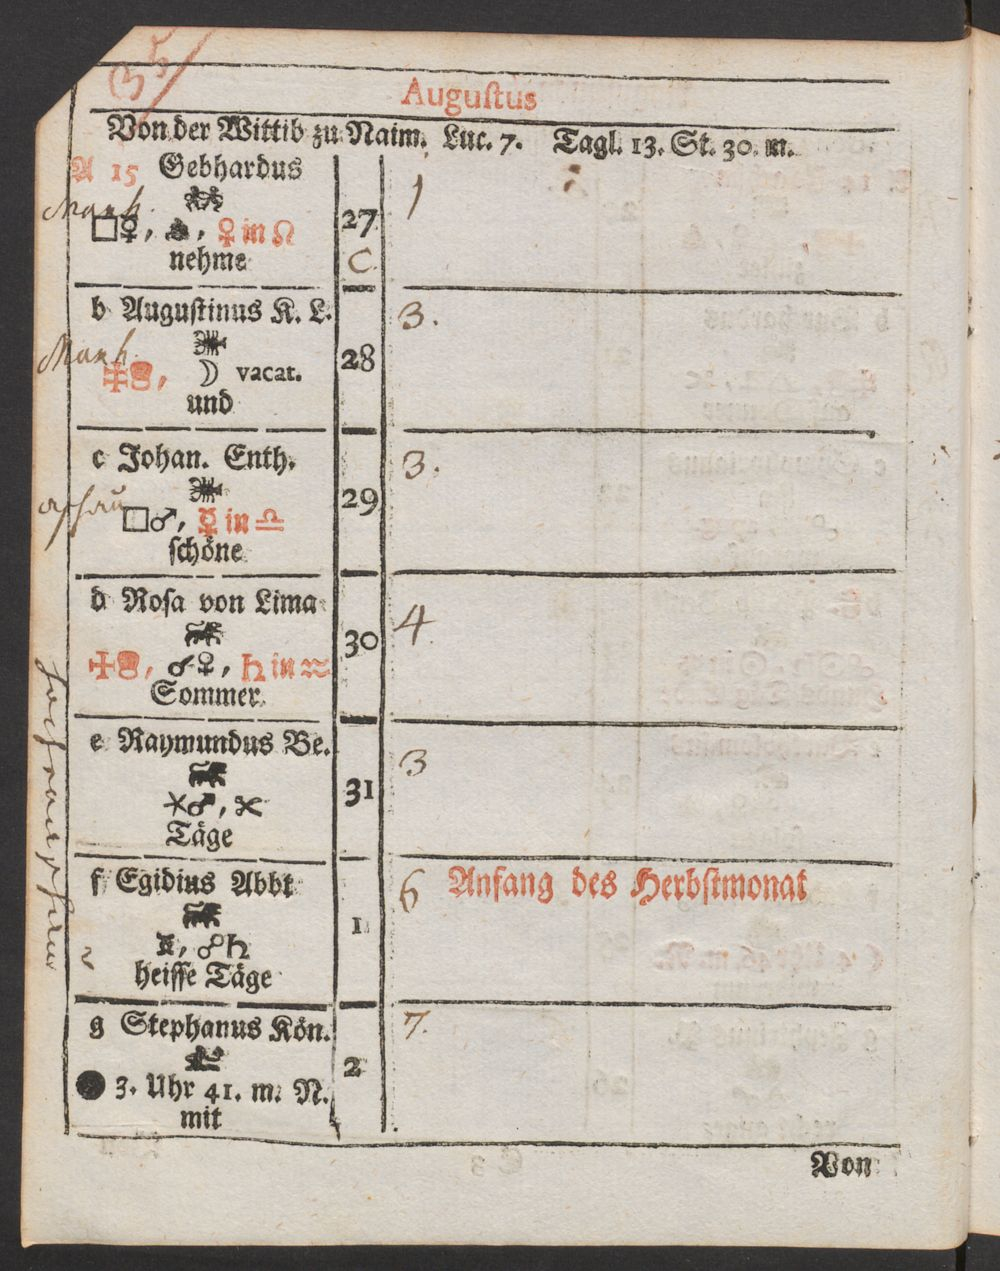 35
Auguſtus
Von der Wittib zu Naim. Luc. 7. Tagl. 13. St. 30. m.
A 15 Gebhardus
□♀, ♀ in ☊
nehme
27
C
1
b Auguſtinus K. L.
☽ vacat.
und
28
3.
c Johan. Enth.
□♂, ☿ in ♎
ſchöne
29
3.
d Roſa von Lima
☌♀, ♄ in ♒
Sommer
30
4
e Raymundus Be.
⚹♂,
Täge
31
3
f Egidius Abbt
☍♄
heiſſe Täge
1
6 Anfang des Herbſtmonat
g Stephanus Kön.
3. Uhr 41. m. N.
mit
2
7.
Von